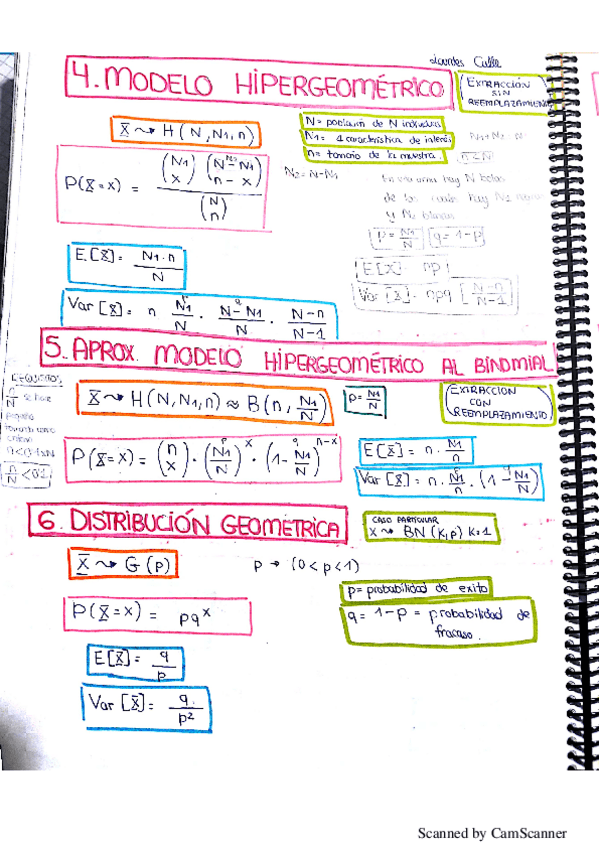 Lourdes Calle
4. MODELO HIPERGEOMÉTRICO
EXTRACCIÓN
SIN
REEMPLAZAMIENTO
X ⇝ H(N, N1, n)
N = población de N individuos
N1 = 1 característica de interés
n = tamaño de la muestra
n < N
P(X = x) = (N1 x) (N - N1 n - x) / (N n)
N2 = N - N1
En una urna hay N bolas
de las cuales hay N1
y N2 blancas
p = N1/N q = 1 - p
E[X] = N1 · n / N
E[X] = np
Var[X] = npq [N - n / N - 1]
Var[X] = n N1/N · N - N1/N · N - n/N - 1
5. APROX. MODELO HIPERGEOMÉTRICO AL BINOMIAL
X ⇝ H(N, N1, n) ≈ B(n, N1/N)
p = N1/N
EXTRACCION
CON
REEMPLAZAMIENTO
se hace
pequeña
n/N < 0'1
P(X = x) = (n x) · (N1/N)^x · (1 - N1/N)^n-x
E[X] = n · N1/n
Var[X] = n · N1/n · (1 - N1/N)
6. DISTRIBUCIÓN GEOMETRICA
CASO PARTICULAR
X ⇝ BN (K, p) K=1
X ⇝ G (p)
p → (0 < p < 1)
p = probabilidad de exito
P(X = x) = pq^x
q = 1 - p = probabilidad de
fracaso.
E[X] = q/p
Var[X] = q/p²
Scanned by CamScanner